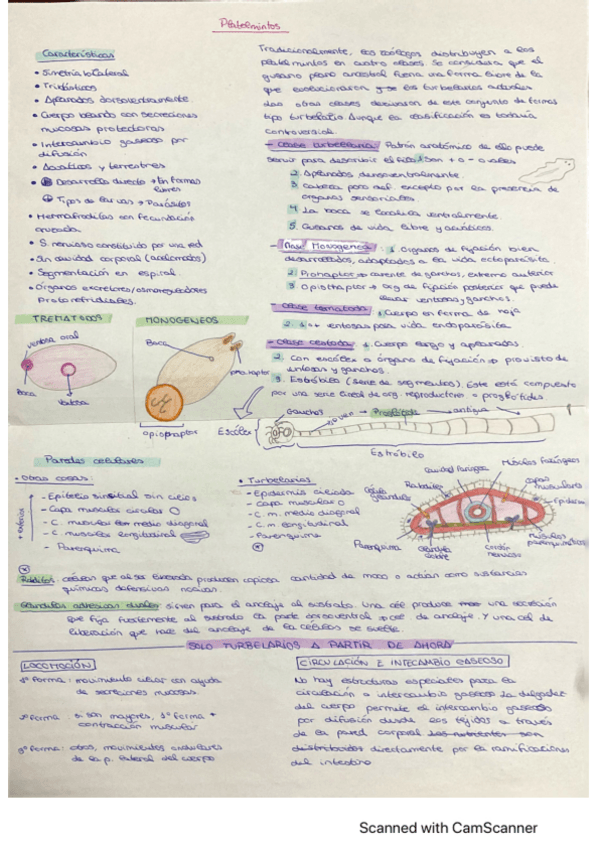 Platelmintos
Características
• Simetría bilateral
• Triblásticos
• Aplanados dorsoventralmente
• Cuerpo blando con secreciones
mucosas protectoras
• Intercambio gaseoso por
difusión
• Acuáticos y terrestres
• Desarrollo directo → En formas
libres
Tipos de larvas → Parásitos
• Hermafroditas con fecundación
cruzada
• S. nervioso constituido por una red
• Sin cavidad corporal (acelomados)
• Segmentación en espiral
• Órganos excretores/osmoreguladores
Protonefridiales.
Tradicionalmente, los zoólogos distribuyen a los
platelmintos en cuatro clases. Se considera que el
gusano plano ancestral fuera una forma libre de la
que evolucionaron y se los turbelarios actuales
Las otras clases derivaron de este conjunto de formas
tipo turbelario aunque la clasificación es todavía
controversial.
- Clase turbellaria: Patrón anatómico de ello puede
servir para describir el filo. Son + o - ovales
2. Aplanados dorsoventralmente.
3. Cabeza poco def. excepto por la presencia de
órganos sensoriales
4. La boca se localiza ventralmente.
5. Gusanos de vida libre y acuáticos.
- Clase Monogenea: 1. Órganos de fijación bien
desarrollados, adaptados a la vida ectoparásita.
2. Prohaptor → carente de ganchos, extremo anterior
3. Opistohaptor → org de fijación posterior que puede
llevar ventosas y ganchos.
- Clase trematoda: 1. Cuerpo en forma de hoja
2. 1 o + ventosas para vida endoparásita.
- Clase cestoda: 1. Cuerpo largo y aplanados.
2. Con escólex u órgano de fijación → provisto de
ventosas y ganchos.
3. Estróbilo (serie de segmentos). Este está compuesto
por una serie lineal de org. reproductores = proglótides
TREMATODOS
ventosa oral
boca
ventosa
MONOGENEOS
Boca
prohaptor
opistohaptor
Escólex
Ganchos
joven
Proglótide
antigua
Estróbilo
Paredes celulares
• Otras clases:
+ externo
- Epitelio sincitial sin cilios
- Capa muscular circular
- C. muscular medio diagonal
- C. muscular longitudinal
- Parénquima
• Turbelarios
- Epidermis ciliada
- Capa muscular
- C. m. medio diagonal
- C. m longitudinal
- Parénquima
Cavidad Faríngea
Músculos Faríngeos
Rabdites
Célula glandular
Capas musculares
Epidermis
Parénquima
Glándula
Cordón nervioso
Músculos parenquimáticos
Rabditos: células que al ser liberadas producen copiosa cantidad de moco o actúan como sustancias
químicas defensivas nocivas.
Glándulas adhesivas duales: sirven para el anclaje al sustrato. Una cél produce una secreción
que fija fuertemente al sustrato la parte dorsoventral → cél de anclaje. Y una cél de
liberación que hace del anclaje de la células se suelte.
SOLO TURBELARIOS A PARTIR DE AHORA
LOCOMOCIÓN
1ª Forma: movimiento ciliar con ayuda
de secreciones mucosas.
2ª Forma: si son mayores, 1ª forma +
contracción muscular
3ª Forma: otros, movimientos ondulares
de la p. lateral del cuerpo
CIRCULACIÓN E INTERCAMBIO GASEOSO
No hay estructuras especiales para la
circulación o intercambio gaseoso. La delgadez
del cuerpo permite el intercambio gaseoso
por difusión desde los tejidos a través
de la pared corporal. Los nutrientes son
distribuidos directamente por la ramificaciones
del intestino
Scanned with CamScanner